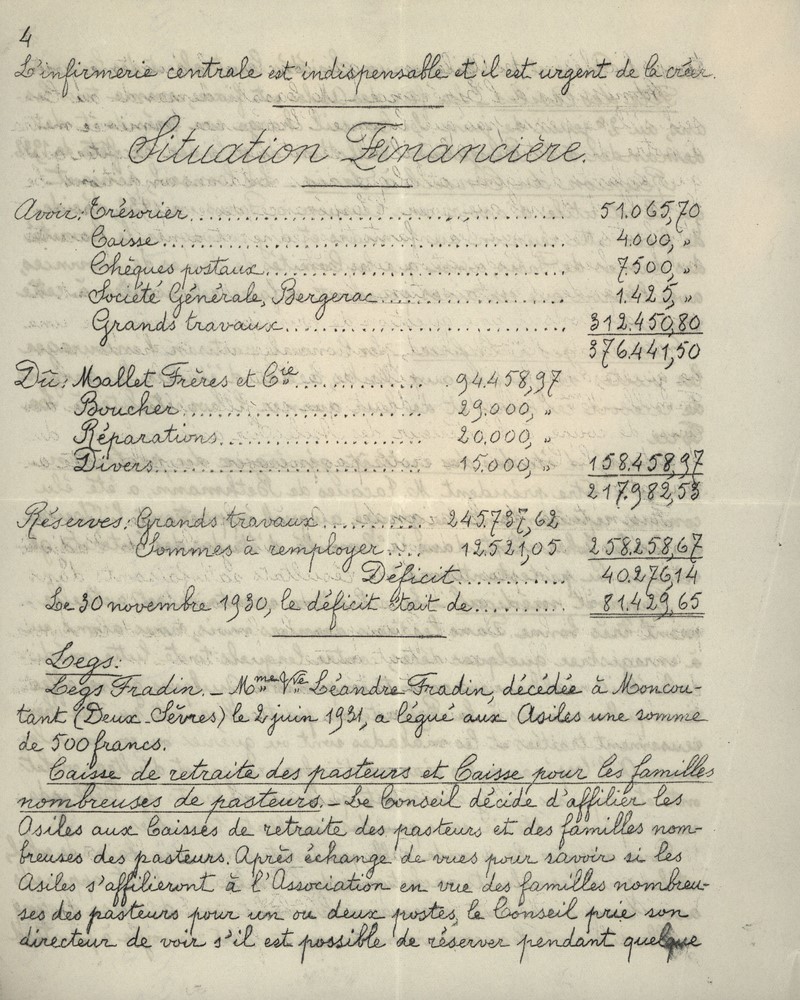 4
L'infirmerie centrale est indispensable et il est urgent de la créer.
Situation Financière.
Avoir: Trésorier........................................ 51.065,70
Caisse........................................ 4.000, »
Chèques postaux................................ 7500, »
Société Générale, Bergerac.................... 1.425, »
Grands travaux................................ 312.450,80
376.441,50
Dû: Mallet Frères et Cie............... 94.458,97
Boucher........................ 29.000, »
Réparations.................... 20.000, »
Divers......................... 15.000, » 158.458,97
217.982,53
Réserves: Grands travaux........... 245.737,62
Sommes à remployer.... 12.521,05 258.258,67
Déficit............ 40.276,14
Le 30 novembre 1930, le déficit était de.......... 81.429,65
Legs:
Legs Fradin. _ Mme Vve Léandre Fradin, décédée à Moncou-
tant (Deux-Sèvres) le 2 juin 1931, a légué aux Asiles une somme
de 500 francs.
Caisse de retraite des pasteurs et Caisse pour les familles
nombreuses de pasteurs. _ Le Conseil décide d'affilier les
Asiles aux Caisses de retraite des pasteurs et des familles nom-
breuses des pasteurs. Après échange de vues pour savoir si les
Asiles s'affilieront à l'Association en vue des familles nombreu-
ses des pasteurs pour un ou deux postes, le Conseil prie son
directeur de voir s'il est possible de réserver pendant quelque